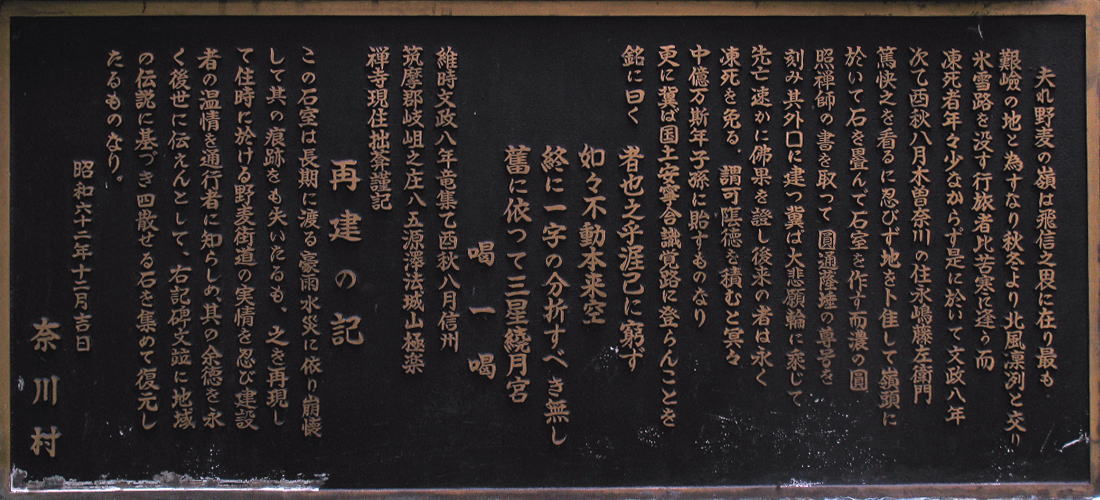 夫れ野麦の嶺は飛信之堺に在り最も
艱嶮の地と為すなり秋冬より北風凛冽と交り
氷雪路を没す行旅者比苦寒に逢う而
凍死者年々少なからず是に於いて文政八年
次て酉秋八月木曽奈川の住永嶋藤左衛門
篤快之を看るに忍びず地を卜隹して嶺頭に
於いて石を畳んで石室を作す而濃の圓
照禅師の書を取って圓通薩埵の尊号を
刻み其外口に建つ冀ば大悲願輪に乗じて
先亡速かに佛果を證し後来の者は永く
凍死を免る、謂可陰徳を積むと冥々
中億万斯年子孫に貽すものなり
更に冀ば国土安寧含識覚路に登らんことを
銘に曰く　者也之乎涯已に窮す
如々不動本来空
終に一字の分折すべき無し
舊に依って三星繞月宮
喝一喝
維時文政八年竜集乙酉秋八月信州
筑摩郡岐岨之庄八五源澤法城山極楽
禅寺現住拙莟謹記
再建の記
この石室は長期に渡る豪雨水災に依り崩懐
して其の痕跡をも失いたるも、之を再現し
て住時に於ける野麦街道の実情を忍び建設
者の温情を通行者に知らしめ、其の余徳を永
く後世に伝えんとして、右記碑文竝に地域
の伝説に基づき四散せる石を集めて復元し
たるものなり。
昭和六十二年十二月吉日
奈川村